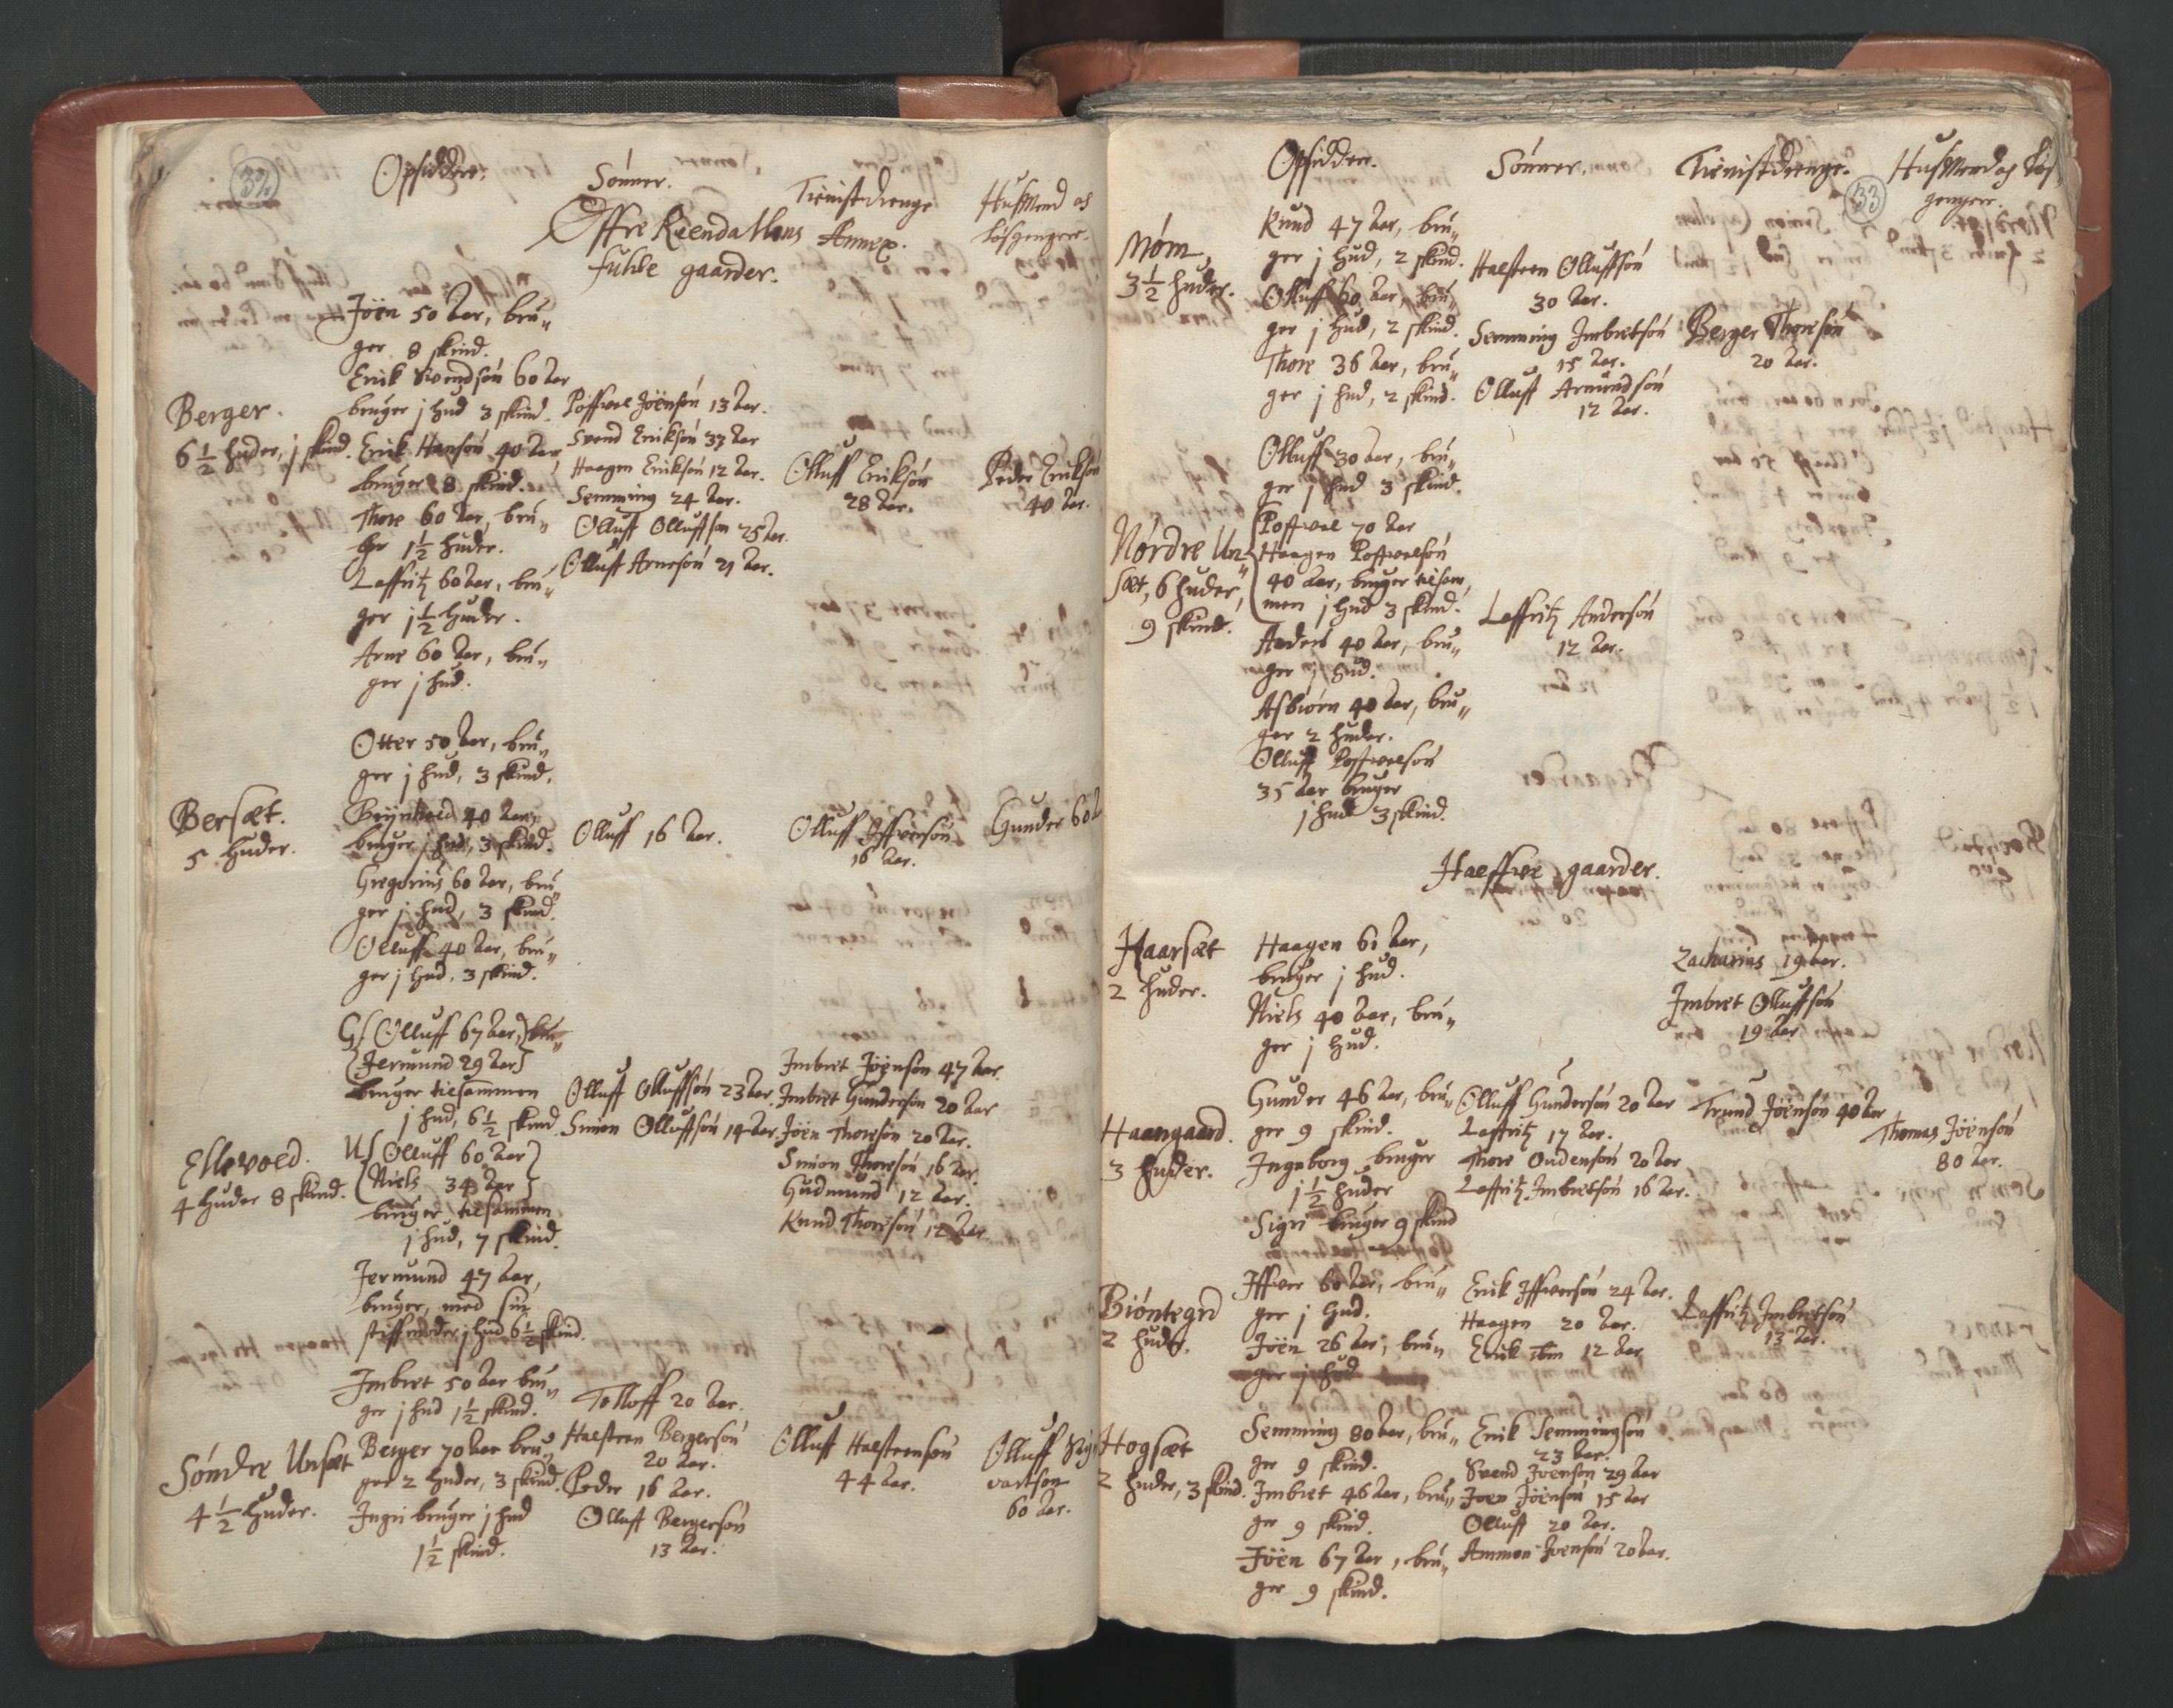 32
Opsidder.
Sönner.
Tienistdrenge
Husmend och
lösgengere.
Öffre Reendallens Annex.
fulde gaarder.
Berger.
6 1/2 huder, j skind.
Jöen 50 aar, bru„
ger 8 skind.
Erik Svendsön 60 aar
bruger j hud 3 skind.
Erik Hansön 40 aar,
bruger 8 skind.
Thore 60 aar, bru„
ger 1 1/2 huder.
Laffritz 60 aar, bru„
ger j 1/2 huder.
Arne 60 aar, bru„
ger j hud.
Poffvel Jöensön 13 aar.
Svend Eriksön 33 aar
Haagen Eriksön 12 aar.
Semming 24 aar.
Olluff Olluffsön 25 aar.
Olluff Arnesön 21 aar.
Olluff Eriksön
28 aar.
Peder Eriksön
40 aar.
Bersæt.
5 huder.
Otter 50 aar, bru„
ger j hud, 3 skind.
Brynild 40 aar,
bruger j hud, 3 skind.
Gregorius 60 aar, bru„
ger j hud, 3 skind.
Olluff 40 aar, bru„
ger j hud, 3 skind.
Olluff 16 aar.
Olluff Iffversön
16 aar.
Gunder 60
Ellevold.
4 huder 8 skind.
G Olluff 67 aar,
Jermund 29 aar
bruger tilsammen
j hud, 6 1/2 skind.
U Olluff 60 aar
Niels 34 aar
bruger tilsammen
j hud, 7 skind.
Jermund 47 aar,
bruger, med sin
stiffmoder j hud 6 1/2 skind.
Olluff Olluffsön 23 aar.
Simen Olluffsön 14 aar.
Imbret Jöensön 47 aar.
Imbret Gundersön 20 aar
Jöen Thoresön 20 aar.
Simon Thoresön 16 aar.
Gudmund 12 aar.
Knud Thoresön 12 aar
Söndre Unsæt
4 1/2 huder.
Imbret 50 aar bru„
ger j hud 1 1/2 skind.
Berger 70 aar bru„
ger 2 huder, 3 skind.
Ingri bruger j hud
1 1/2 skind.
Tolloff 20 aar.
Halsteen Bergersön
20 aar.
Peder 16 aar.
Olluff Bergersön
13 aar.
Olluff Halsteensön
44 aar.
Olluff Sig
vartsön
60 aar.
33
Opsidder.
Sönner.
Tienistdrenge.
Husmend og lös„
gengere.
Möm,
3 1/2 huder.
Knud 47 aar, bru„
ger j hud, 2 skind.
Olluff 60 aar, bru„
ger j hud, 2 skind.
Thore 36 aar, bru„
ger j hud, 2 skind.
Halsteen Olluffsön
30 aar.
Semming Imbretsön
15 aar.
Olluff Armundsön
12 aar.
Berger Thoresön
20 aar.
Nördre Un„
sæt, 6 huder,
9 skind.
Olluff 30 aar, bru„
ger j hud 3 skind.
Poffvel 70 aar
Haagen Poffvelsön
40 aar, bruger tilsam„
men j hud 3 skind.
Anders 40 aar, bru„
ger j hud.
Asbiörn 40 aar, bru„
ger 2 huder.
Olluff Poffvelsön
35 aar bruger
j hud 3 skind.
Laffritz Andersön
12 aar.
Halffve gaarder.
Haarsæt
2 huder.
Haagen 61 aar,
bruger j hud.
Niels 40 aar, bru„
ger j hud.
Zacharius 19 aar.
Imbret Olluffsön
19 aar
Haangaard.
3 huder.
Gunder 46 aar, bru„
ger 9 skind.
Ingeborg bruger
1 1/2 huder
Sigri bruger 9 skind
Olluff Gundersön 20 aar
Laffritz 17 aar.
Thore Oudensön 20 aar
Laffritz Imbretsön 16 aar.
Trund Jöensön 40 aar
Thomas Jöensön
80 aar.
Biöntegrd
2 huder.
Iffver 60 aar, bru„
ger j hud.
Jöen 26 aar, bru„
ger j hud
Erik Iffversön 24 aar.
Haagen 20 aar.
Erik ibm 12 aar
Laffritz Imbretsön
13 aar.
Hogsæt
2 huder, 3 skind.
Semming 80 aar, bru„
ger 9 skind.
Imbret 46 aar, bru„
ger 9 skind.
Jöen 67 aar, bru„
ger 9 skind.
Erik Semmingsön
23 aar.
Svend Joensön 29 aar
Joen Jöensön 15 aar
Olluff 20 aar.
Ammon Joensön 20 aar.